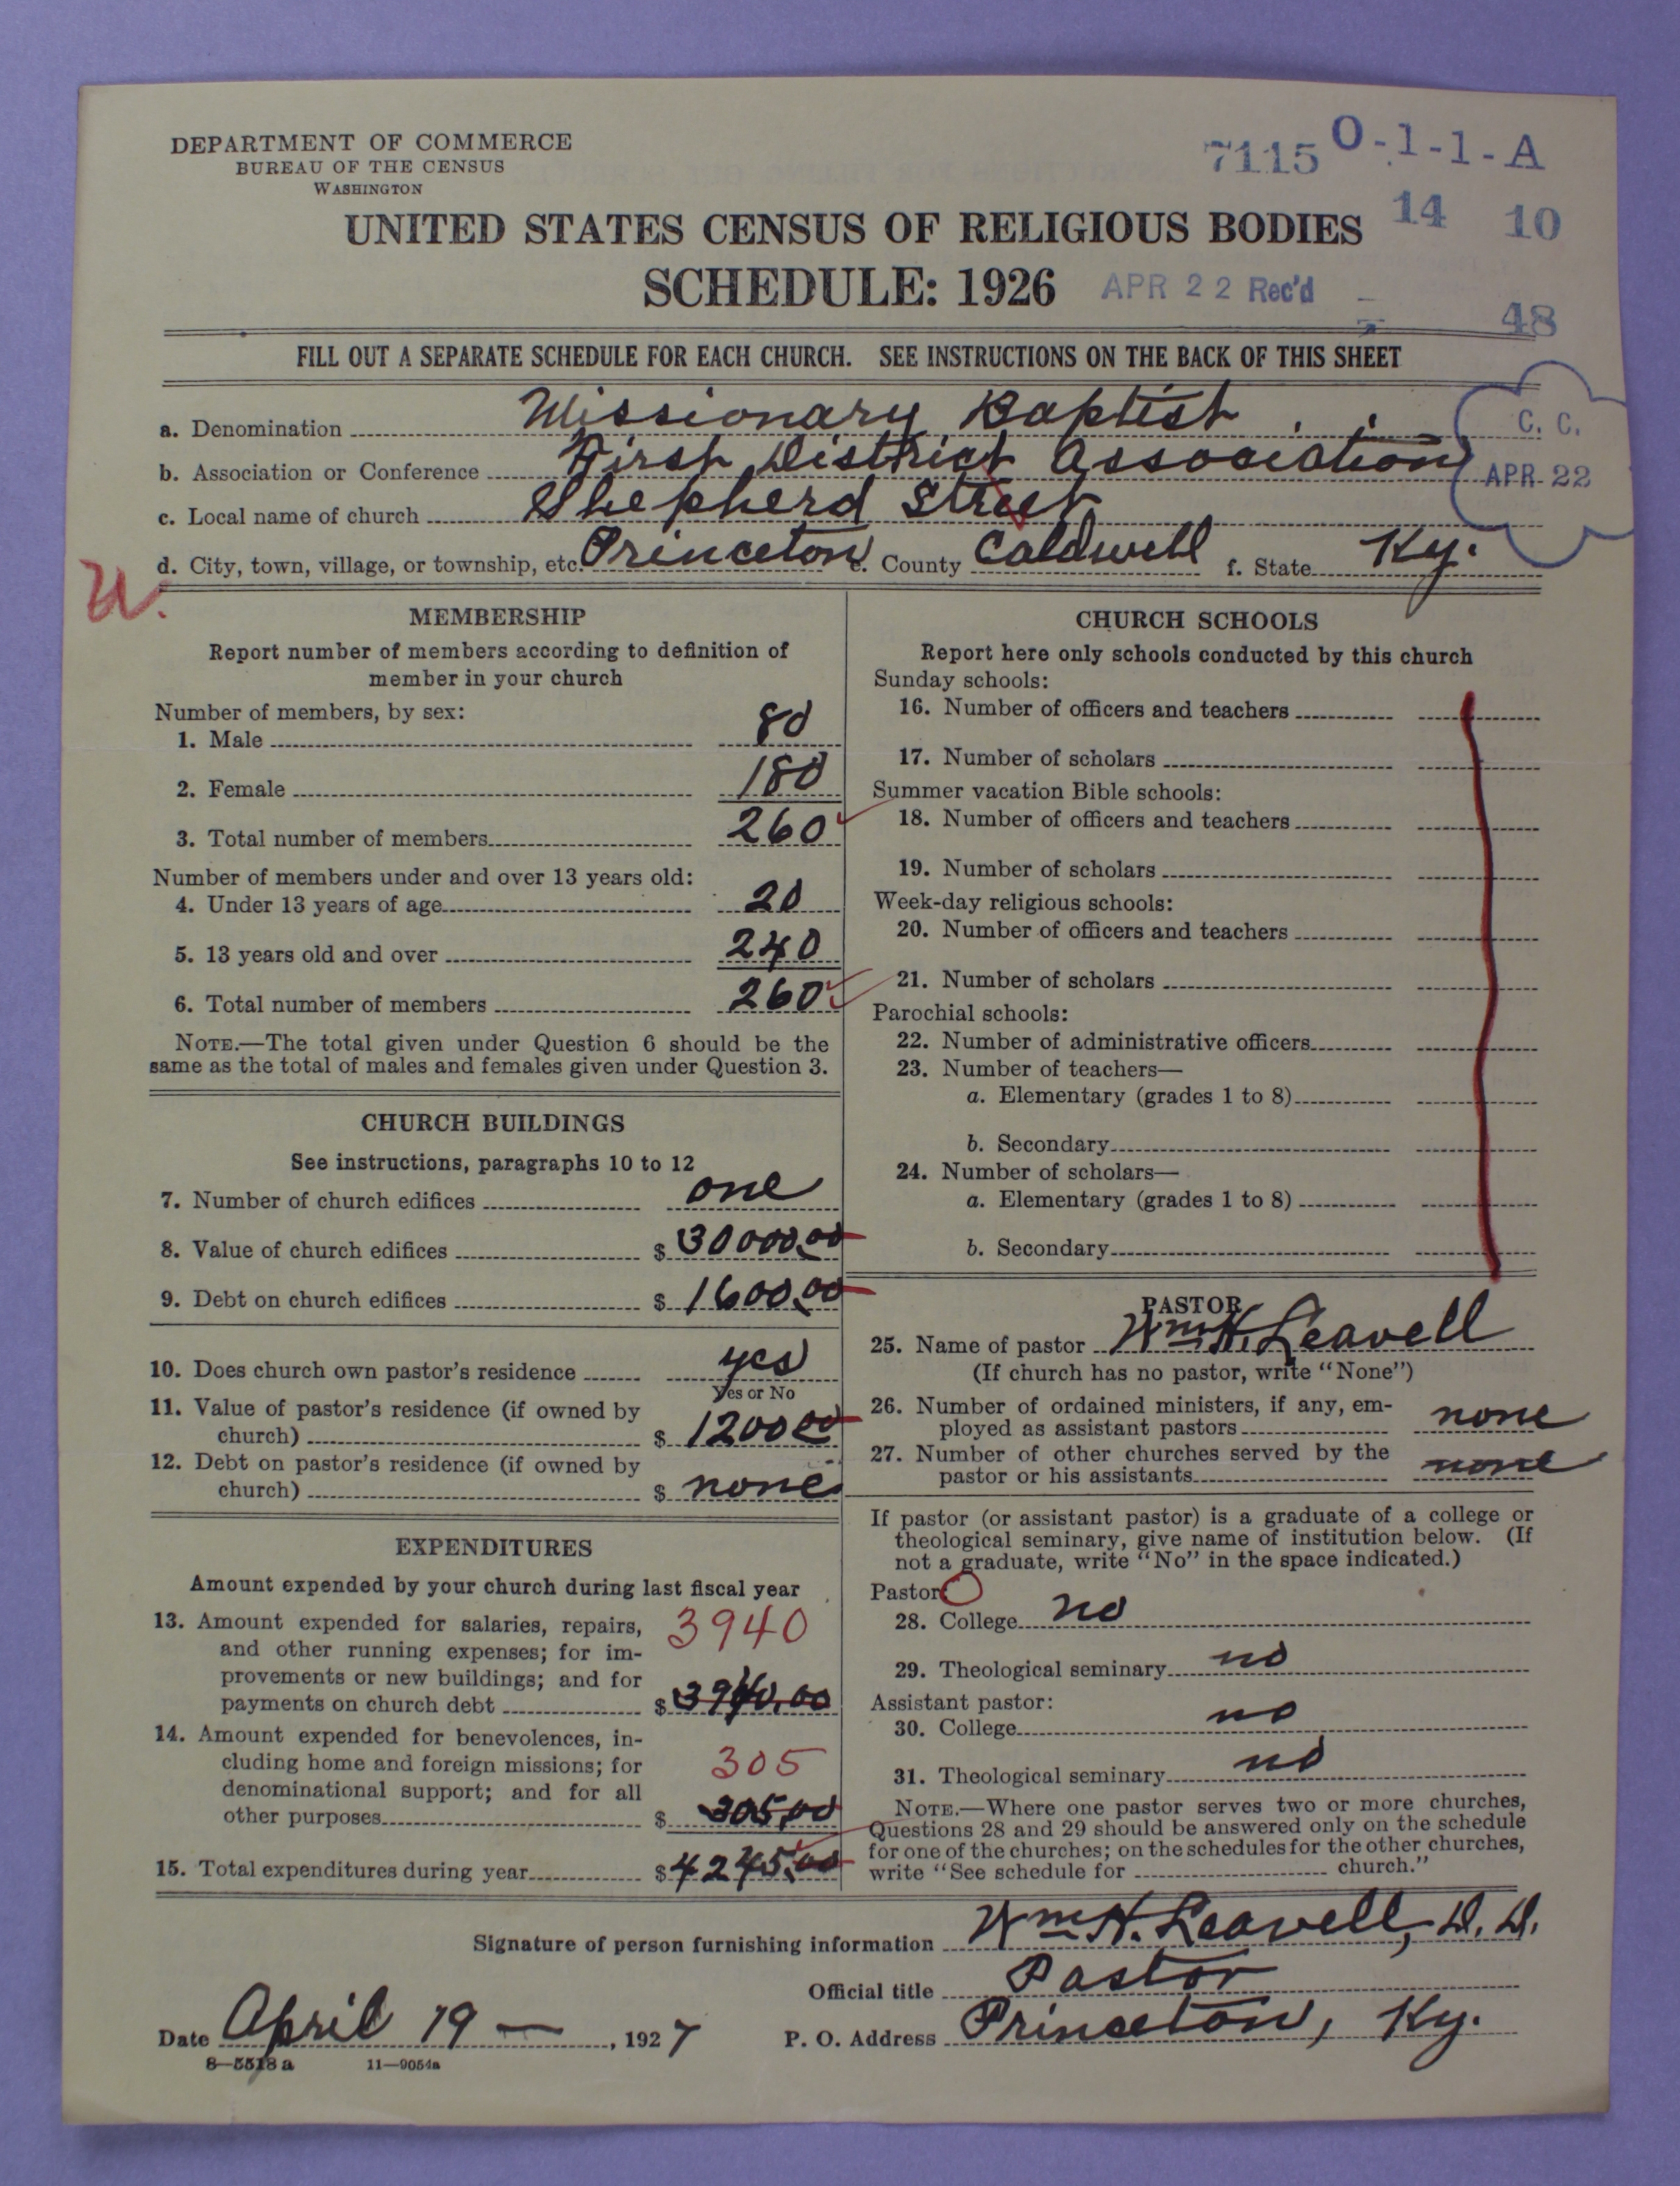 DEPARTMENT OF COMMERCE
BUREAU OF THE CENSUS
WASHINGTON
7115 O-1-1-A
14 10
UNITED STATES CENSUS OF RELIGIOUS BODIES
SCHEDULE: 1926
APR 22 Rec'd
48
FILL OUT A SEPARATE SCHEDULE FOR EACH CHURCH. SEE INSTRUCTIONS ON THE BACK OF THIS SHEET
a. Denomination Missionary Baptist
b. Association or Conference First District Association
c. Local name of church Shepherd Street
C. C.
APR 22
d. City, town, village, or township, etc. Princeton e. County Caldwell f. State Ky.
MEMBERSHIP
Report number of members according to definition of
member in your church
Number of members, by sex:
1. Male 80
2. Female 180
3. Total number of members 260
Number of members under and over 13 years old:
4. Under 13 years of age 20
5. 13 years old and over 240
6. Total number of members 260
NOTE.—The total given under Question 6 should be the
same as the total of males and females given under Question 3.
CHURCH BUILDINGS
See instructions, paragraphs 10 to 12
7. Number of church edifices one
8. Value of church edifices $ 30000.00
9. Debt on church edifices $ 1600.00
10. Does church own pastor's residence yes
Yes or No
11. Value of pastor's residence (if owned by
church) $ 1200 00
12. Debt on pastor's residence (if owned by
church) $ none
EXPENDITURES
Amount expended by your church during last fiscal year
13. Amount expended for salaries, repairs,
and other running expenses; for im-
provements or new buildings; and for
payments on church debt $ 3940.00
3940
14. Amount expended for benevolences, in-
cluding home and foreign missions; for
denominational support; and for all
other purposes $ 305.00
305
15. Total expenditures during year $ 4245.00
CHURCH SCHOOLS
Report here only schools conducted by this church
Sunday schools:
16. Number of officers and teachers
17. Number of scholars
Summer vacation Bible schools:
18. Number of officers and teachers
19. Number of scholars
Week-day religious schools:
20. Number of officers and teachers
21. Number of scholars
Parochial schools:
22. Number of administrative officers
23. Number of teachers—
a. Elementary (grades 1 to 8)
b. Secondary
24. Number of scholars—
a. Elementary (grades 1 to 8)
b. Secondary
PASTOR
25. Name of pastor Wm H. Leavell
(If church has no pastor, write "None")
26. Number of ordained ministers, if any, em-
ployed as assistant pastors none
27. Number of other churches served by the
pastor or his assistants none
If pastor (or assistant pastor) is a graduate of a college or
theological seminary, give name of institution below. (If
not a graduate, write "No" in the space indicated.)
Pastor:
28. College no
29. Theological seminary no
Assistant pastor:
30. College no
31. Theological seminary no
NOTE.—Where one pastor serves two or more churches,
Questions 28 and 29 should be answered only on the schedule
for one of the churches; on the schedules for the other churches,
write "See schedule for church."
Signature of person furnishing information Wm H. Leavell, D. D.
Official title Pastor
Date April 19 — , 1927 P. O. Address Princeton, Ky.
8—5518 a 11—9054a